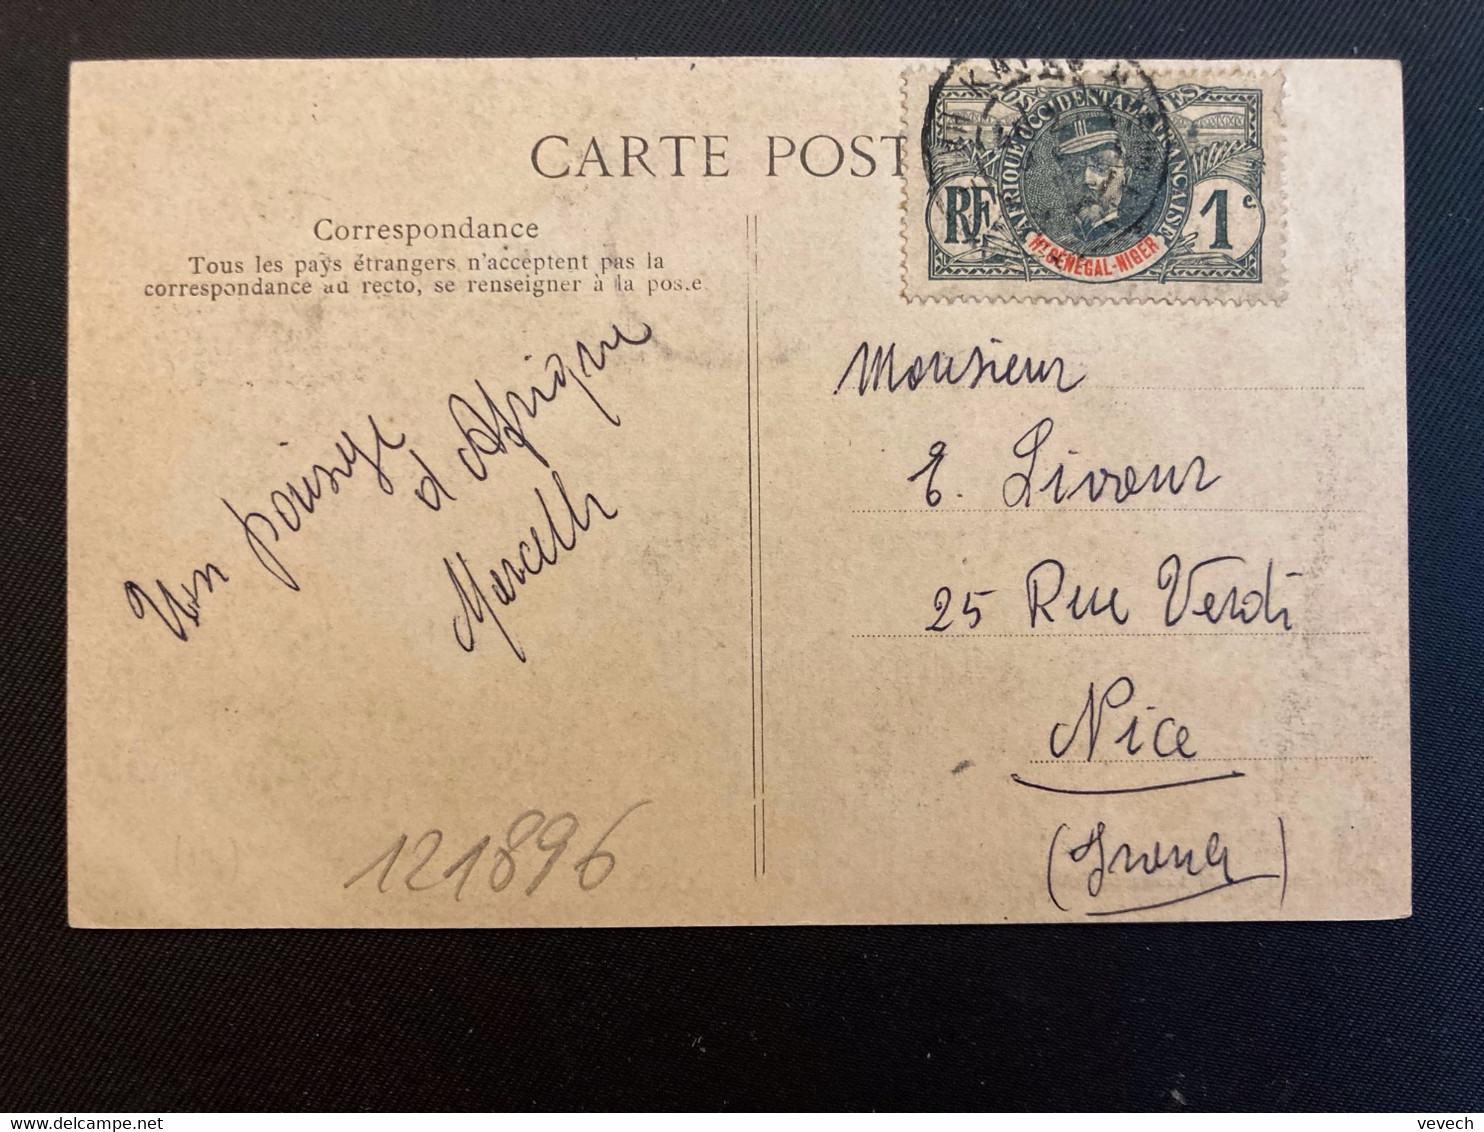 CARTE POST
Correspondance
Tous les pays étrangers n'acceptent pas la
correspondance au recto, se renseigner à la poste
AFRIQUE OCCIDENTALE FRANÇAISE
RF
1 c.
Ht SÉNÉGAL-NIGER
KAYES
Un paysage
d'Afrique
Marcelle
Monsieur
E. Livreur
25 Rue Verdi
Nice
(France)
121896
vevech